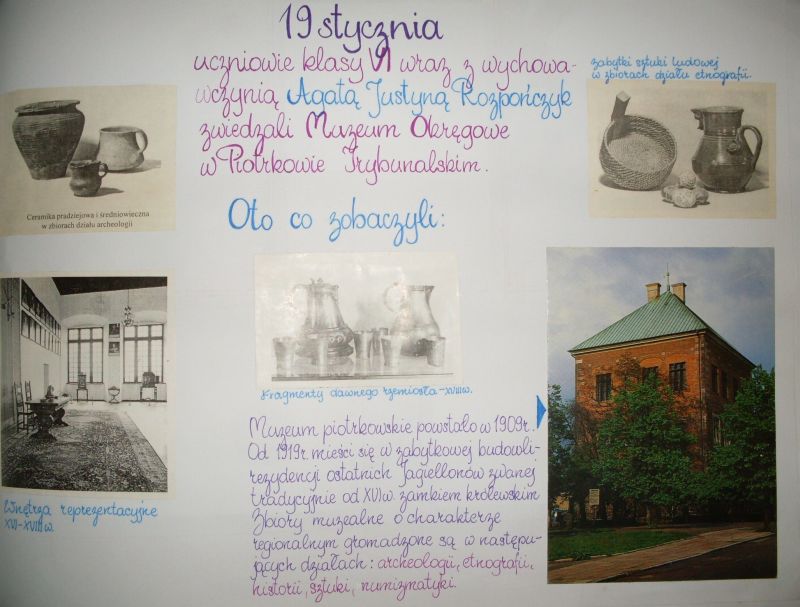 19 stycznia
uczniowie klasy VI wraz z wychowa-
wczynią Agatą Justyną Rozpończyk
zwiedzali Muzeum Okręgowe
w Piotrkowie Trybunalskim.
zabytki sztuki ludowej
w zbiorach działu etnografii.
Ceramika pradziejowa i średniowieczna
w zbiorach działu archeologii
Oto co zobaczyli:
Fragmenty dawnego rzemiosła-XVIIIw.
Wnętrza reprezentacyjne
XVI-XVIIIw.
Muzeum piotrkowskie powstało w 1909r.
Od 1919r. mieści się w zabytkowej budowli-
rezydencji ostatnich Jagiellonów zwanej
tradycyjnie od XVIw. zamkiem królewskim
Zbiory muzealne o charakterze
regionalnym gromadzone są w następu-
jących działach: archeologii, etnografii,
historii, sztuki, numizmatyki.